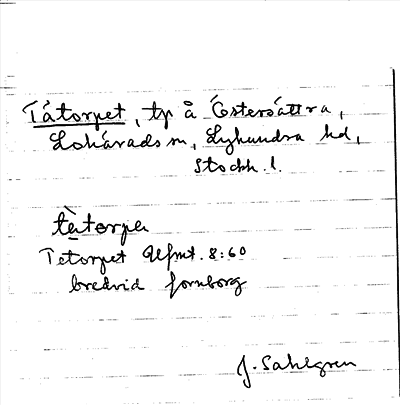 Tåtorpet, tp å Östersättra,
Lohärads sn, Lyhundra hd,
Stockh. l.
tὲtorpe
Tetorpet Ufmt. 8:60
bredvid fornborg
J. Sahlgren